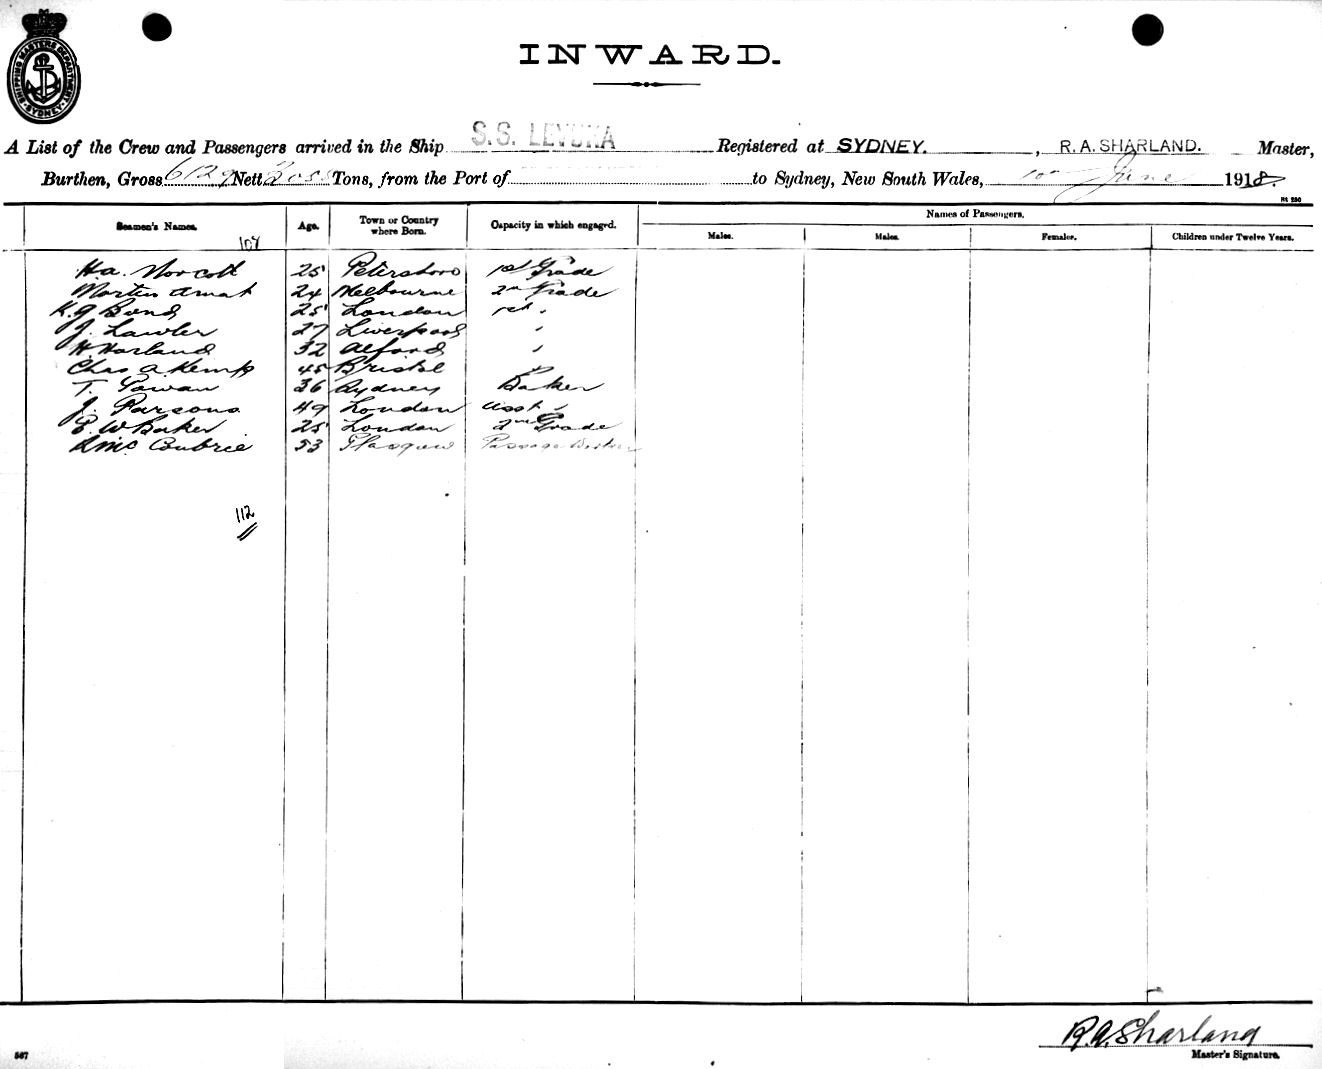 SHIPPING MASTERS DEPARTMENT SYDNEY
INWARD.
A List of the Crew and Passengers arrived in the Ship S.S. LEVUKA Registered at SYDNEY. , R. A. SHARLAND. Master,
Burthen, Gross 6129 Nett Tons, from the Port of to Sydney, New South Wales, 10 June 1918.
Seamen's Names. Age. Town or Country where Born. Capacity in which engaged. Names of Passengers.
Males. Males. Females. Children under Twelve Years.
H. A. Norcott 25 Petersboro 1st Grade
Martin 24 Melbourne 2nd Grade
K. G Bond 25 London
J. Lawler 27 Liverpool "
H Harland 32 Alford "
Chas A Kemp 45 Bristol "
T. Cowan 36 Sydney Baker
J. Parsons 49 London Asst "
E. W Baker 25 London 2nd Grade
Mc Coubrie 53 Glasgow Passage Worker
112
R. A. Sharland
Master's Signature.
567